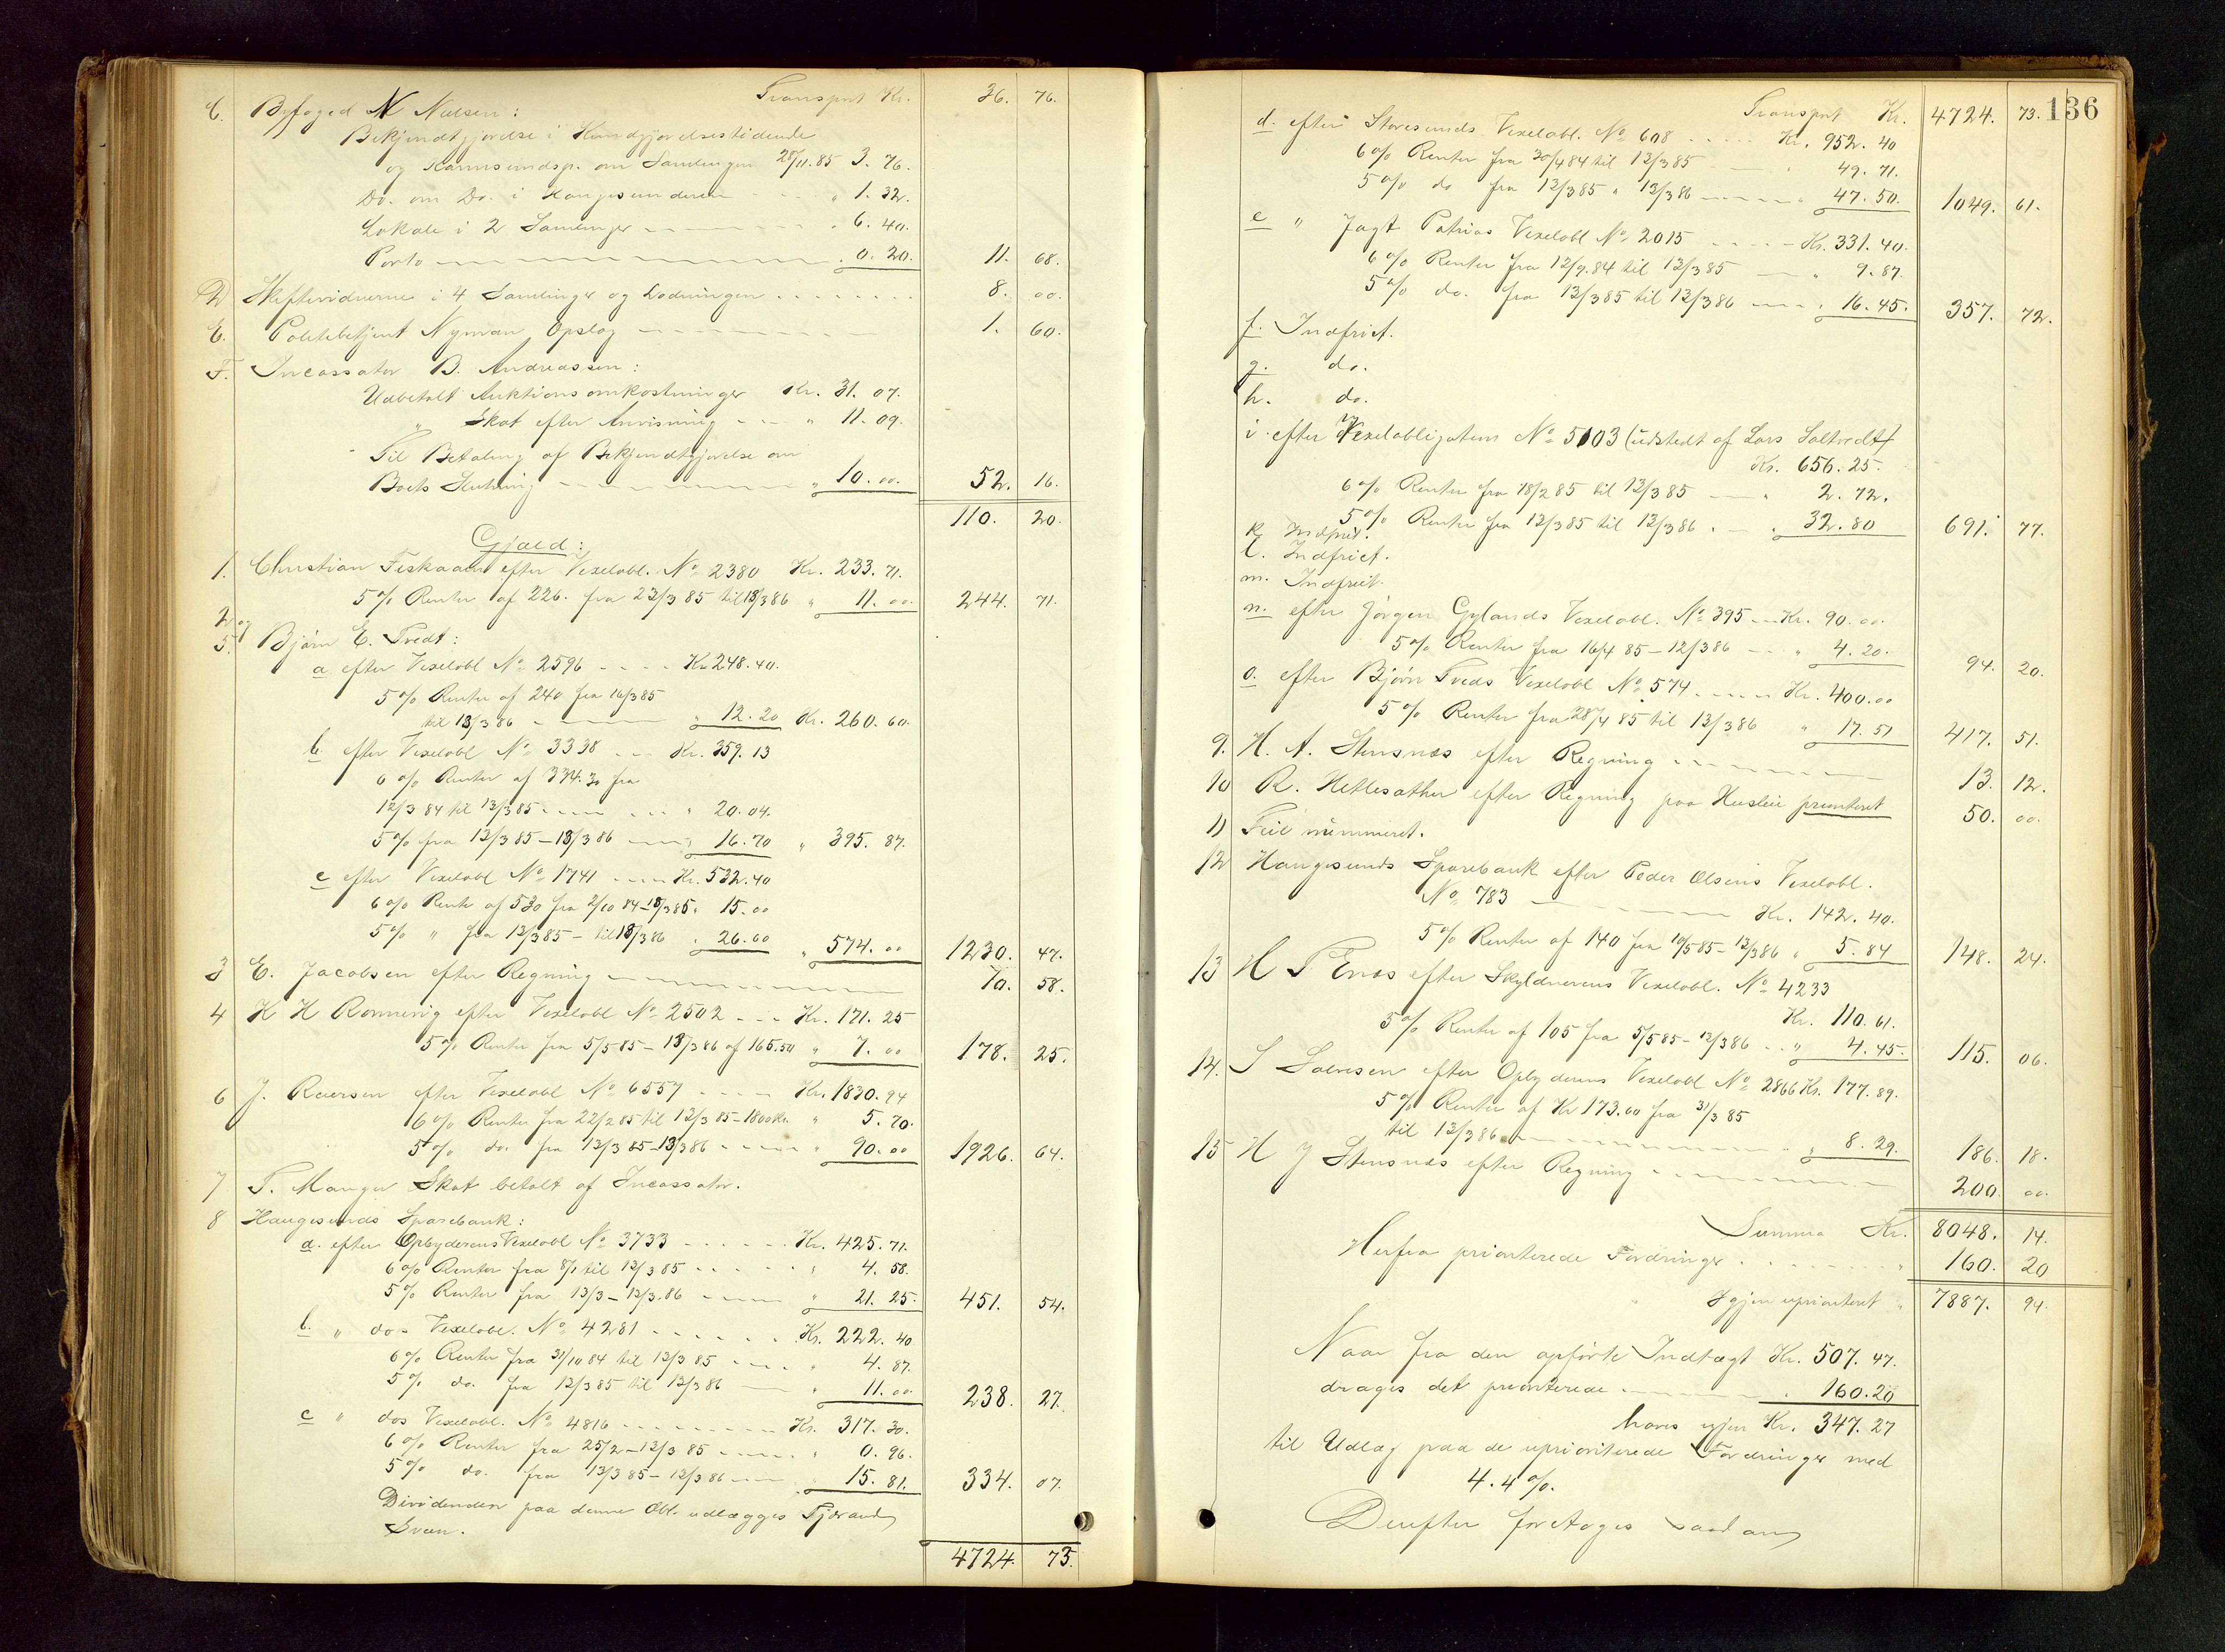 Transport Kr. 36. 76.
C. Byfoged N Nielsen:
Bekjendtgjørelse i Kundgjørelsestidende
og Karmsundsp. om Samlingen 28/11.85 3. 76.
Do. om Do. i Haugesunderen " 1. 32.
Lokale i 2 Samlinger " 6. 40.
Porto " 0. 20. 11. 68.
D Skiftevidnerne i 4 Samlinger og Lodningen 8. 00.
E. Politibetjent Nyman Opslag 1. 60.
F. Incassator B. Andreassen:
Udbetalt Auktionsomkostninger Kr. 31. 07.
" Skat efter Anvisning " 11. 09.
Til Betaling af Bekjendtgjørelse om
Boets Slutning " 10. 00. 52. 16.
110. 20.
Gjæld:
1. Christian Feskaaen efter Vexelobl. No 2380 Kr. 233. 71.
5 % Renter af 226. fra 23/3 85 til 13/3 86 " 11. 00. 244. 71.
2 og
5. Bjørn E. Tvedt:
a efter Vexelobl No 2596 Kr 248. 40.
5 % Renter af 240 fra 16/3 85
til 13/3 86 " 12. 20 Kr. 260. 60.
b. efter Vexelobl No 3338 Kr. 359. 13
6 % Renter af 334. 30 fra
12/3 84 til 13/3 85 " 20. 04.
5 % fra 13/3 85 – 13/3 86 " 16. 70 " 395. 87.
c efter Vexelobl No 1741 Kr. 532. 40
6 % Rente af 520 fra 2/10 84 – 13/3 85 " 15. 00
5 % " fra 13/3 85 – til 13/3 86 " 26. 60 " 574. 00 1230. 47.
3 E. Jacobsen efter Regning 70. 58.
4 K H Rønning efter Vexelobl No 2502 Kr. 171. 25
5 % Renter fra 5/5 85 – 13/3 86 af 165.50 " 7. 00 178. 25.
6 J. Reiersen efter Vexelobl No 6557 Kr. 1830. 94
6 % Renter fra 22/2 85 til 13/3 85 – 1800 Kr. " 5. 70.
5 % do. fra 13/3 85 – 13/3 86 " 90. 00 1926. 64.
7 T. Manger Skat betalt af Incassator.
8 Haugesunds Sparebank:
a. efter Opbyderens Vexelobl No 3733 Kr. 425. 71.
6 % Renter fra 8/1 til 13/3 85 " 4. 58.
5 % Renter fra 13/3 – 13/3. 86 " 21. 25. 451. 54.
b. " dos Vexelobl. No 4281 Kr. 222. 40
6 % Renter fra 31/10 84 til 13/3 85 " 4. 87.
5 % do. fra 13/3 85 til 13/3 86 " 11. 00. 238. 27.
c " dos Vexelobl. No 4816 Kr. 317. 30.
6 % Renter fra 25/2 – 13/3 85 " 0. 96.
5 % do. fra 13/3 85 – 13/3 86 " 15. 81. 334. 07.
Dividenden paa denne Obl. udlægges Tjerand
Sveen.
4724. 73.
136
Transport Kr. 4724. 73.
d. efter Storesunds Vexelobl. No 608 Kr. 952. 40
6 % Renter fra 30/4 84 til 13/3 85 " 49. 71.
5 % do fra 13/3 85 " 13/3 86 " 47. 50. 1049. 61.
e " Jagt Patrias Vexelobl No 2015 Kr. 331. 40.
6 % Renter fra 12/9. 84 til 13/3 85 " 9. 87.
5 % do. fra 13/3 85 til 13/3 86 " 16. 45. 357. 72.
f. Indfriet.
g. do.
h. do.
i. efter Vexelobligation No 5103 (udstedt af Lars Saltvedt)
Kr. 656. 25.
6 % Renter fra 18/2 85 til 13/3 85 " 2. 72.
5 % Renter fra 13/3 85 til 13/3 86 " 32. 80 691. 77.
k Indfriet.
l. Indfriet.
m. Indfriet.
n. efter Jørgen Gylands Vexelobl. No 395 Kr. 90. 00.
5 % Renter fra 16/4 85 – 13/3 86 " 4. 20. 94. 20.
o. efter Bjørn Tveds Vexelobl No 574 Kr. 400. 00
5 % Renter fra 28/4 85 til 13/3 86 " 17. 51 417. 51.
9. H. A. Stensnæs efter Regning 13. 12.
10 R. Hetlesæther efter Regning paa Husleie prioriteret 50. 00.
11 Feil nummeret.
12 Haugesunds Sparebank efter Peder Olsens Vexelobl.
No 783 Kr. 142. 40.
5 % Renter af 140 fra 10/5 85 – 13/3 86 " 5. 84 148. 24.
13 H P Enæs efter Skyldnerens Vexelobl. No 4233
Kr. 110. 61.
5 % Renter af 105 fra 5/5 85 – 13/3 86 " 4. 45. 115. 06.
14. S Salvesen efter Opbyderens Vexelobl No 2866 Kr. 177. 89.
5 % Renter af Kr 173. 60 fra 31/3 85
til 13/3 86 " 8. 29. 186. 18.
15 H J Stensnæs efter Regning 200. 00.
Summa Kr. 8048. 14.
Herfra prioriterede Fordringer " 160. 20
Igjen uprioriteret " 7887. 94.
Naar fra den opførte Indtægt Kr. 507. 47.
drages det prioriterede " 160. 20
haves igjen Kr. 347. 27
til Udlæg paa de uprioriterede Fordringer med
4. 4 %.
Derefter foretoges saadan